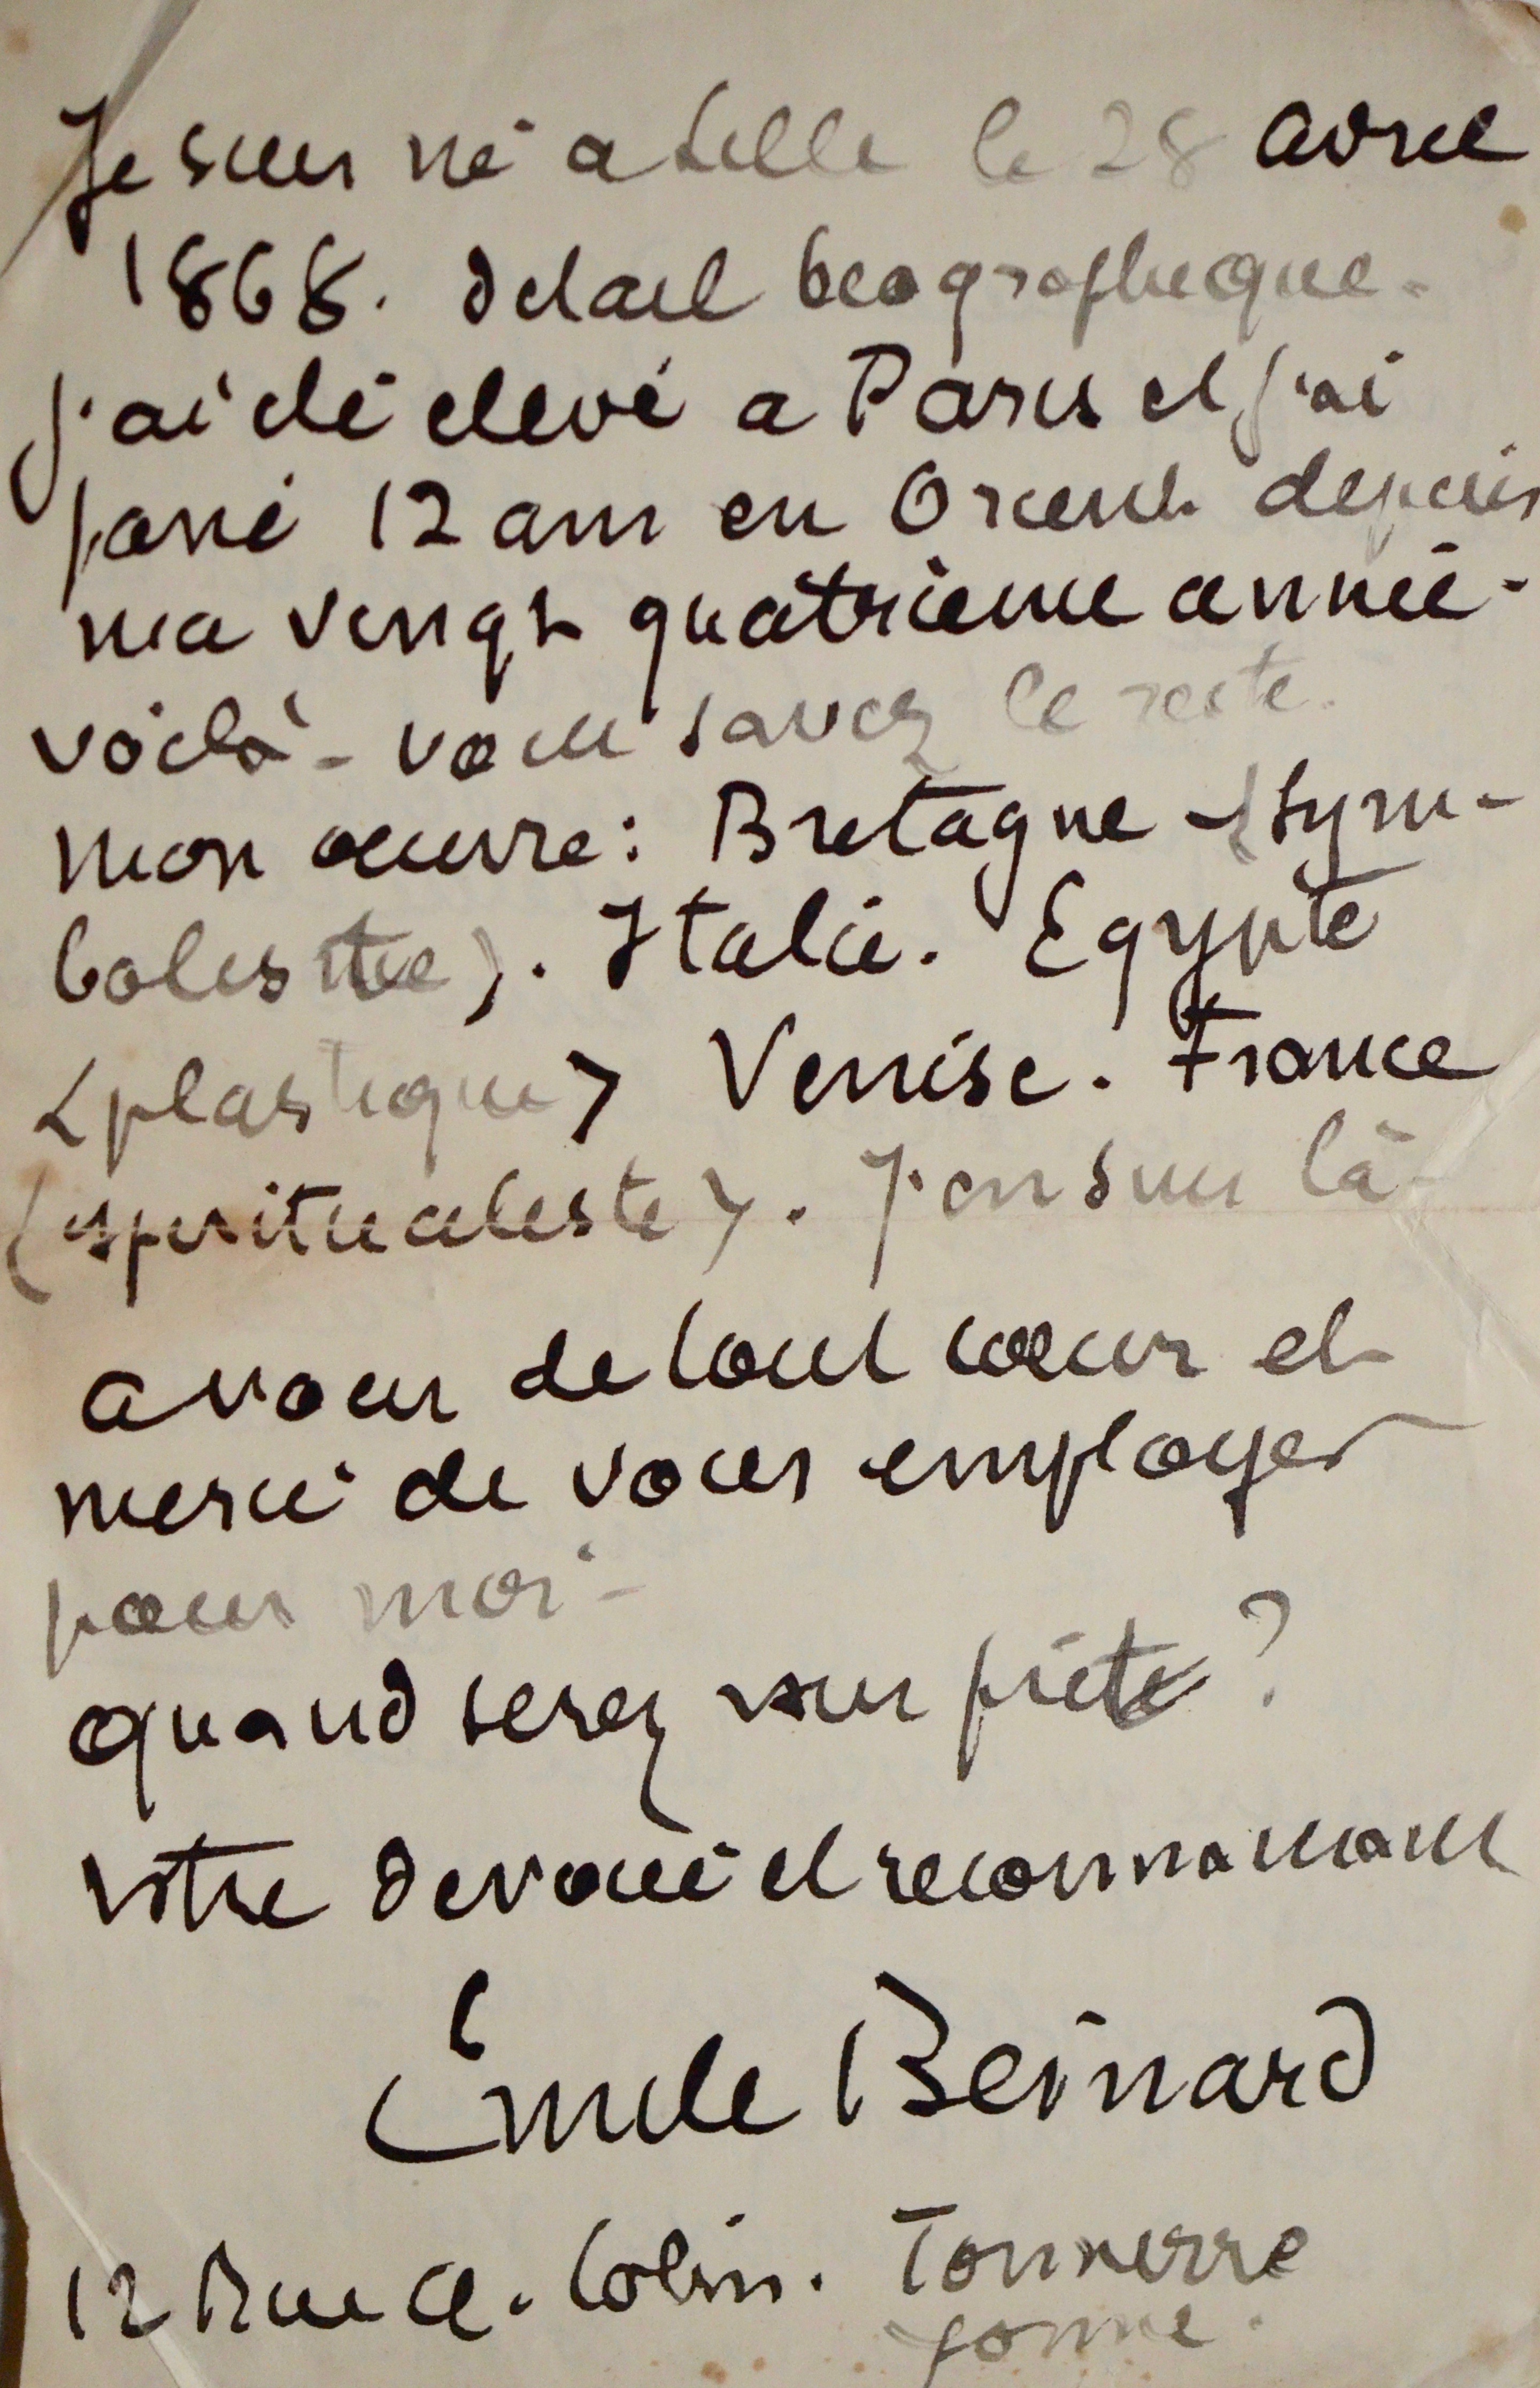 Je suis né a Lille le 28 avril
1868. detail biographique.
j'ai été élevé a Paris et j'ai
passé 12 ans en Orient depuis
ma vingt quatrieme année -
voilà - vous savez le reste.
mon œuvre : Bretagne - (sym-
boliste). Italie. Egypte
(plastique) Venise. France
(spiritualiste). J'en suis là -
a vous de tout cœur et
merci de vous employer
pour moi -
quand serez vous prète ?
votre devoué et reconnaissant
Émile Bernard
12 Rue A. Colin. Tonnerre
Yonne.